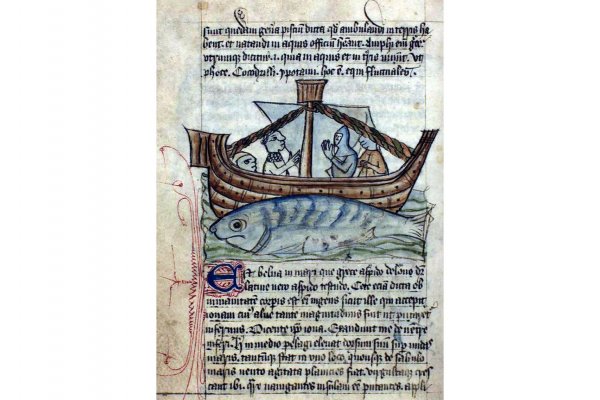 sunt quedam gen̄a pisciū dicta qd̄ ambulandi in terris ha
bent. et natandi in aquis officiū hēant. Amphi em̄ grec
utrumqꝫ dicitur .i. quia in aquis et in tr̄is uiuūt. ut
phoce. Cocodrilli. ypotami. hoc ē. equi fluctuales.
Est belua in mari que grece aspido delone dr̄
latine uero aspido testudo. Cete eciā dicta ob
inmanitatē corpis est em̄ ingens sicut ille qui accepit
ionam cui᷒ alue tante magnitudinis fuit ut putaret
infernus. Dicente ip̄o iona. Exaudiuit me de uentre
inferi. in medio pelagi eleuat dorsum suū sup undas
maris. tantumqꝫ stat in uno loco. quousqꝫ de sabulo
maris uento agitata planicies fiat. uirgultaqꝫ cres
cant ibi. nauigantes insulam eē putantes. appli